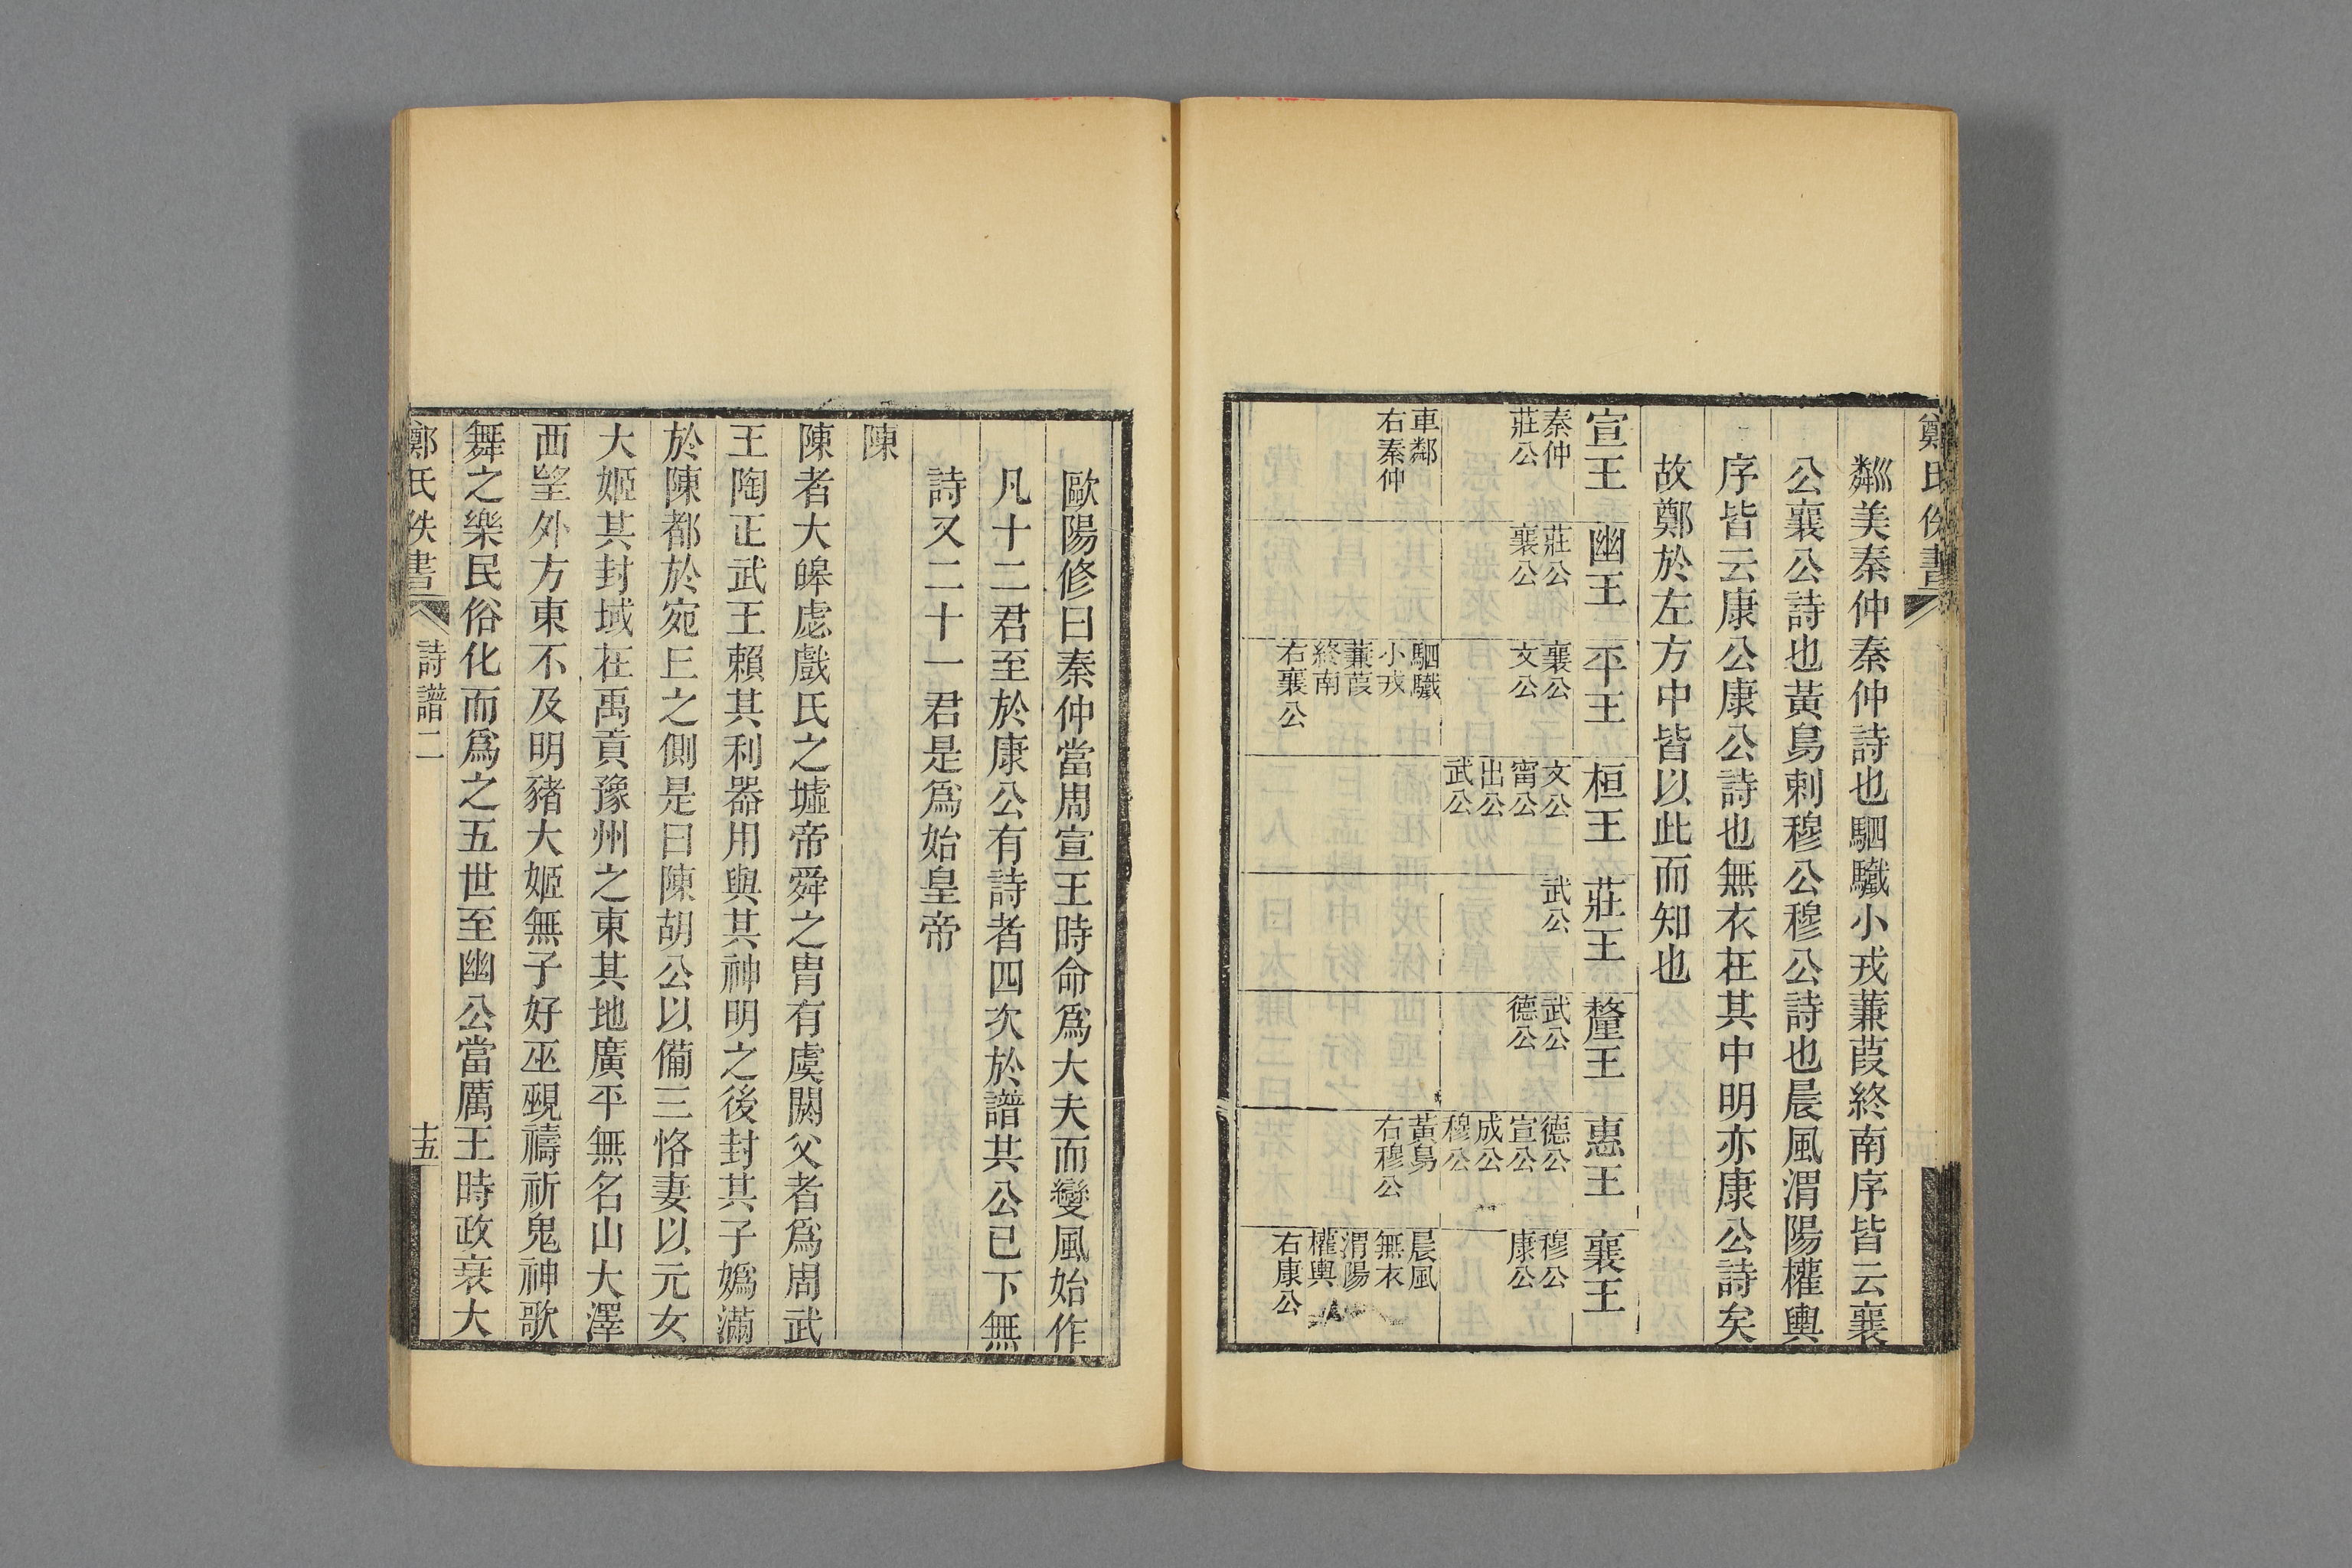 鄭氏佚書
鄰美秦仲秦仲詩也駟驖小戎蒹葭終南序皆云襄
公襄公詩也黃鳥刺穆公穆公詩也晨風渭陽權輿
序皆云康公康公詩也無衣在其中明亦康公詩矣
故鄭於左方中皆以此而知也
宣王
秦仲
莊公
車鄰
右秦仲
幽王
莊公
襄公
平王
襄公
文公
駟驖
小戎
蒹葭
終南
右襄公
桓王
文公
甯公
出公
武公
莊王
武公
釐王
武公
德公
惠王
德公
宣公
成公
穆公
黃鳥
右穆公
襄王
穆公
康公
晨風
無衣
渭陽
權輿
右康公
歐陽修曰秦仲當周宣王時命爲大夫而變風始作
凡十二君至於康公有詩者四次於譜其公已下無
詩又二十一君是爲始皇帝
陳
陳者大皞虙戲氏之墟帝舜之胄有虞閼父者爲周武
王陶正武王賴其利器用與其神明之後封其子嬀滿
於陳都於宛丘之側是曰陳胡公以備三恪妻以元女
大姬其封域在禹貢豫州之東其地廣平無名山大澤
西朢外方東不及明豬大姬無子好巫覡禱祈鬼神歌
舞之樂民俗化而爲之五世至幽公當厲王時政衰大
鄭氏佚書
詩譜二
十五